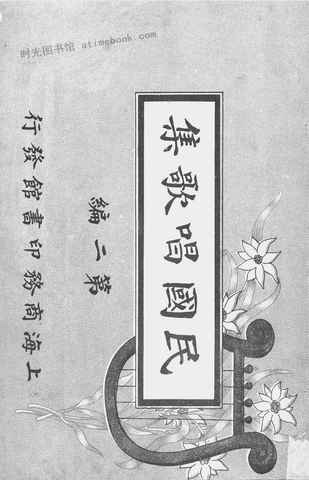 时光图书馆 atimebook.com
民國唱歌集
第二編
上海商務印書館發行